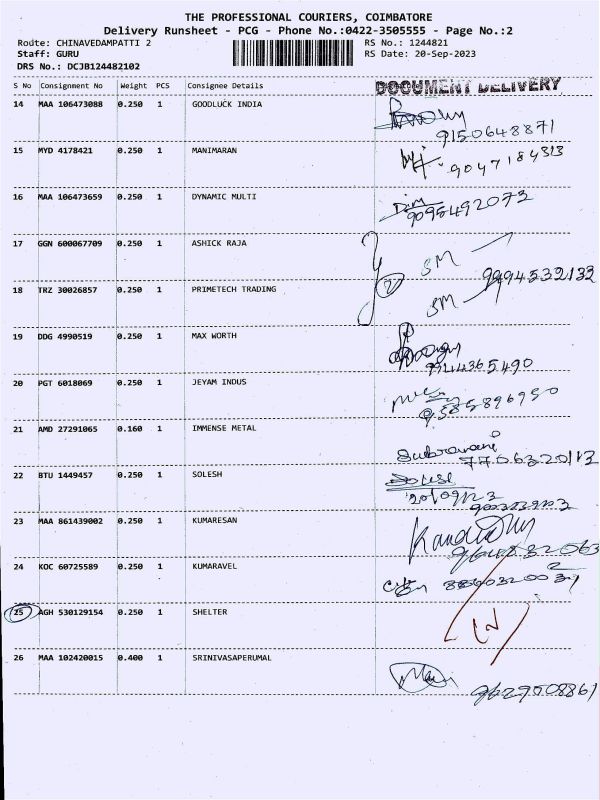 THE PROFESSIONAL COURIERS, COIMBATORE
Delivery Runsheet - PCG - Phone No.:0422-3505555 - Page No.:2
Route: CHINAVEDAMPATTI 2 RS No.: 1244821
Staff: GURU RS Date: 20-Sep-2023
DRS No.: DCJB124482102
S No Consignment No Weight PCS Consignee Details DOCUMENT DELIVERY
14 MAA 106473088 0.250 1 GOODLUCK INDIA
9150648871
15 MYD 4178421 0.250 1 MANIMARAN
9047184313
16 MAA 106473659 0.250 1 DYNAMIC MULTI
9095492072
17 GGN 600067709 0.250 1 ASHICK RAJA
SM
9994532132
18 TRZ 30026857 0.250 1 PRIMETECH TRADING
SM
19 DDG 4990519 0.250 1 MAX WORTH
9944365490
20 PGT 6018069 0.250 1 JEYAM INDUS
9585896950
21 AMD 27291065 0.160 1 IMMENSE METAL
22 BTU 1449457 0.250 1 SOLESH
20/09/23
23 MAA 861439002 0.250 1 KUMARESAN
24 KOC 60725589 0.250 1 KUMARAVEL
25 AGH 530129154 0.250 1 SHELTER
26 MAA 102420015 0.400 1 SRINIVASAPERUMAL
9629508861